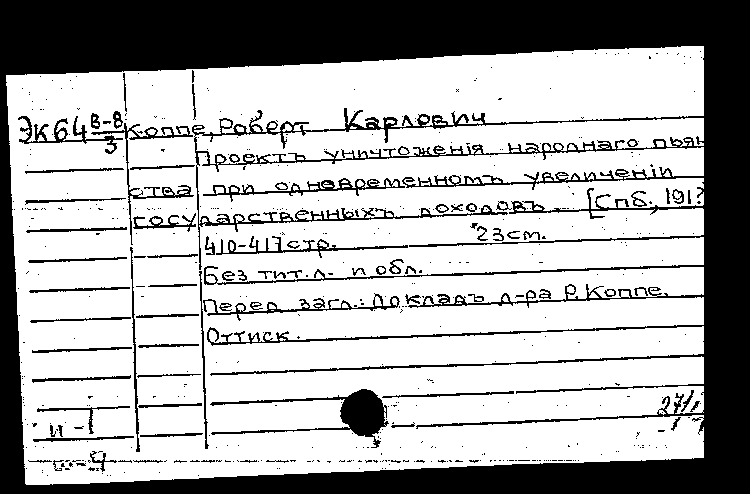 ЭК64 В-8/3 Коппе, Роберт Карлович
Проектъ уничтоженія народнаго пьян
ства при одновременномъ увеличеніи
государственныхъ доходовъ. [Спб., 191?
410-417 стр. 23 см.
Без тит. л. и обл.
Перед загл.: Докладъ д-ра Р. Коппе.
Оттиск.
и-1
ш-9